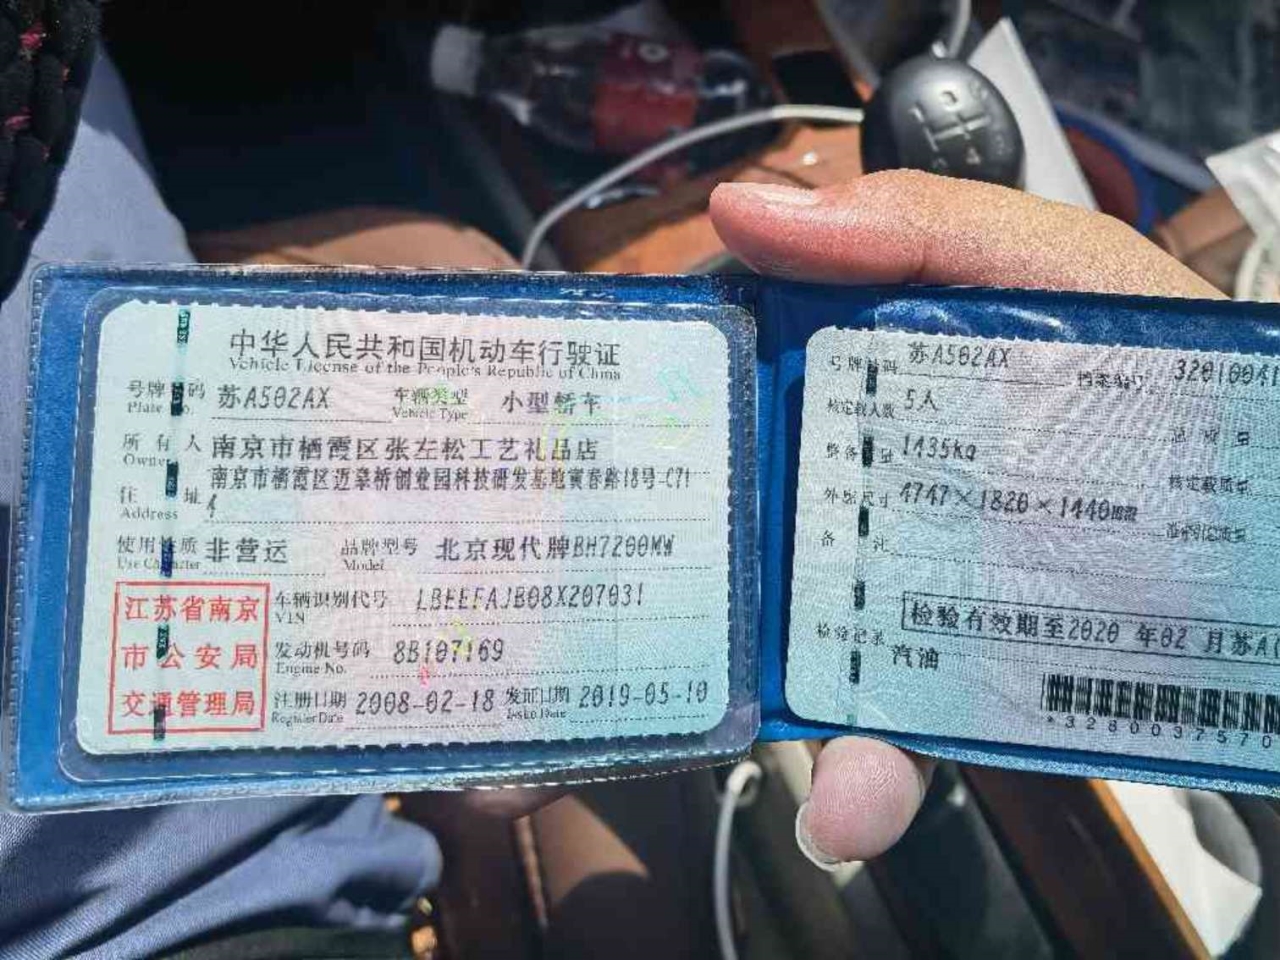 中华人民共和国机动车行驶证
Vehicle License of the People's Republic of China
号牌 码 苏A502AX 车辆类型 小型轿车
Plate No. Vehicle Type
所有人 南京市栖霞区张左松工艺礼品店
Owner
住 址 南京市栖霞区迈皋桥创业园科技研发基地寅春路18号-C71
4
Address
使用性质 非营运 品牌型号 北京现代牌BH7200MW
Use Character Model
江苏省南京
市公安局
交通管理局
车辆识别代号 LBEEFAJB08X207031
VIN
发动机号码 8B107169
Engine No.
注册日期 2008-02-18 发证日期 2019-05-10
Register Date Issue Date
号牌 码 苏A502AX 档案编号 32010041
核定载人数 5人
整备 量 1435kg 核定载质量
外廓尺寸 4747×1820×1440mm
备 注
检验有效期至2020 年02 月苏A(
检验记录
汽油
*3280037570